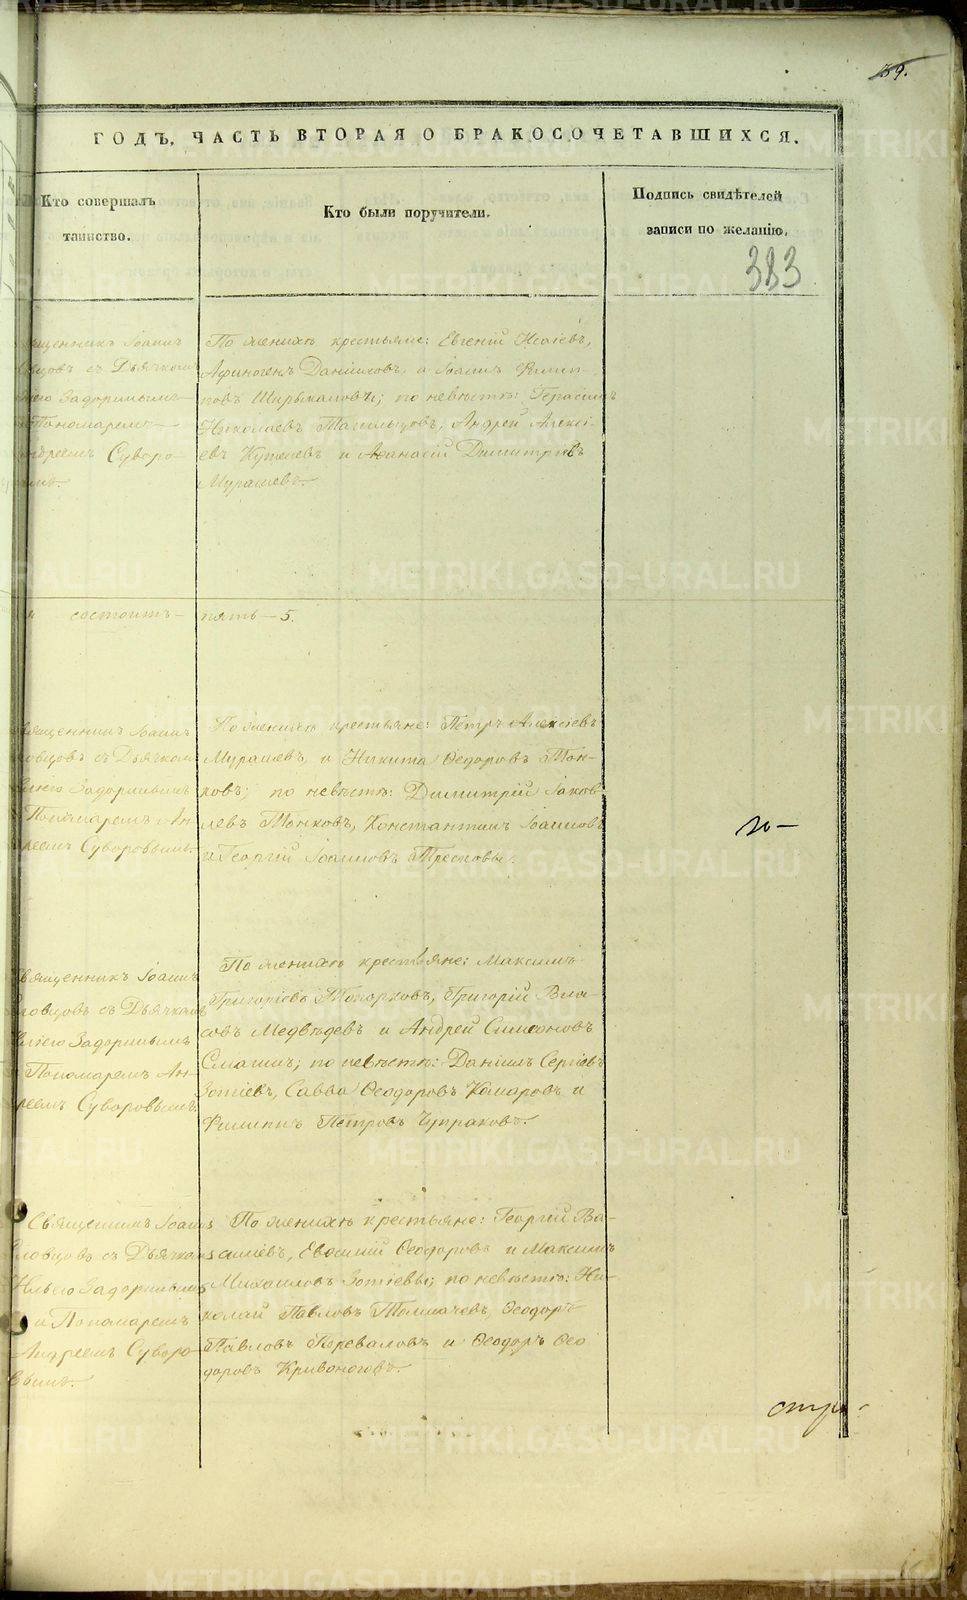 39.
ГОДЪ, ЧАСТЬ ВТОРАЯ О БРАКОСОЧЕТАВШИХСЯ.
Кто совершалъ
таинство.
Кто были поручители.
Подпись свидѣтелей
записи по желанію.
383
Іоаннъ
съ Дьячкомъ
Задоринымъ
Пономаремъ
Суворо
По женихѣ крестьяне: Евгеній Исаіевъ,
Афиногенъ Даніиловъ, и Іоаннъ Филип-
повъ Ширыкаловы; по невѣстѣ: Герасимъ
Николаевъ Андрей Алексі-
евъ и Аѳанасій Димитріевъ
Мурашевъ.
состоитъ — пять — 5.
Іоаннъ
съ Дьячкомъ
Задоринымъ
Пономаремъ Ан-
Суворовымъ.
По женихѣ крестьяне: Петръ Алексіевъ
Мурашевъ, и Никита Ѳедоровъ Тон-
ковъ; по невѣстѣ: Димитрій Іаков-
левъ Тонковъ, Константинъ Іоанновъ
и Георгій Іоанновъ Тресковы.
Іоаннъ
съ Дьячкомъ
Задоринымъ
Пономаремъ Ан-
реемъ Суворовымъ.
По женихѣ крестьяне: Максимъ
Григоріевъ Топорковъ, Григорій Вла-
совъ Медвѣдевъ и Андрей Симеоновъ
Смагинъ; по невѣстѣ: Даніилъ Сергіевъ
Зотіевъ, Савва Ѳеодоровъ Комаровъ и
Филиппъ Петровъ Чупраковъ.
Священникъ Іоаннъ
съ Дьячкомъ
Задоринымъ
и Пономаремъ
Андреемъ Суворо-
вымъ.
По женихѣ крестьяне: Георгій Ва-
силіевъ, Евѳимій Ѳеодоровъ и Максимъ
Михаиловъ Зотіевы; по невѣстѣ: Ни-
колай Павловъ Толмачевъ, Ѳеодоръ
Павловъ Переваловъ и Ѳеодоръ Ѳео
доровъ Кривоноговъ.
METRIKI.GASO-URAL.RU